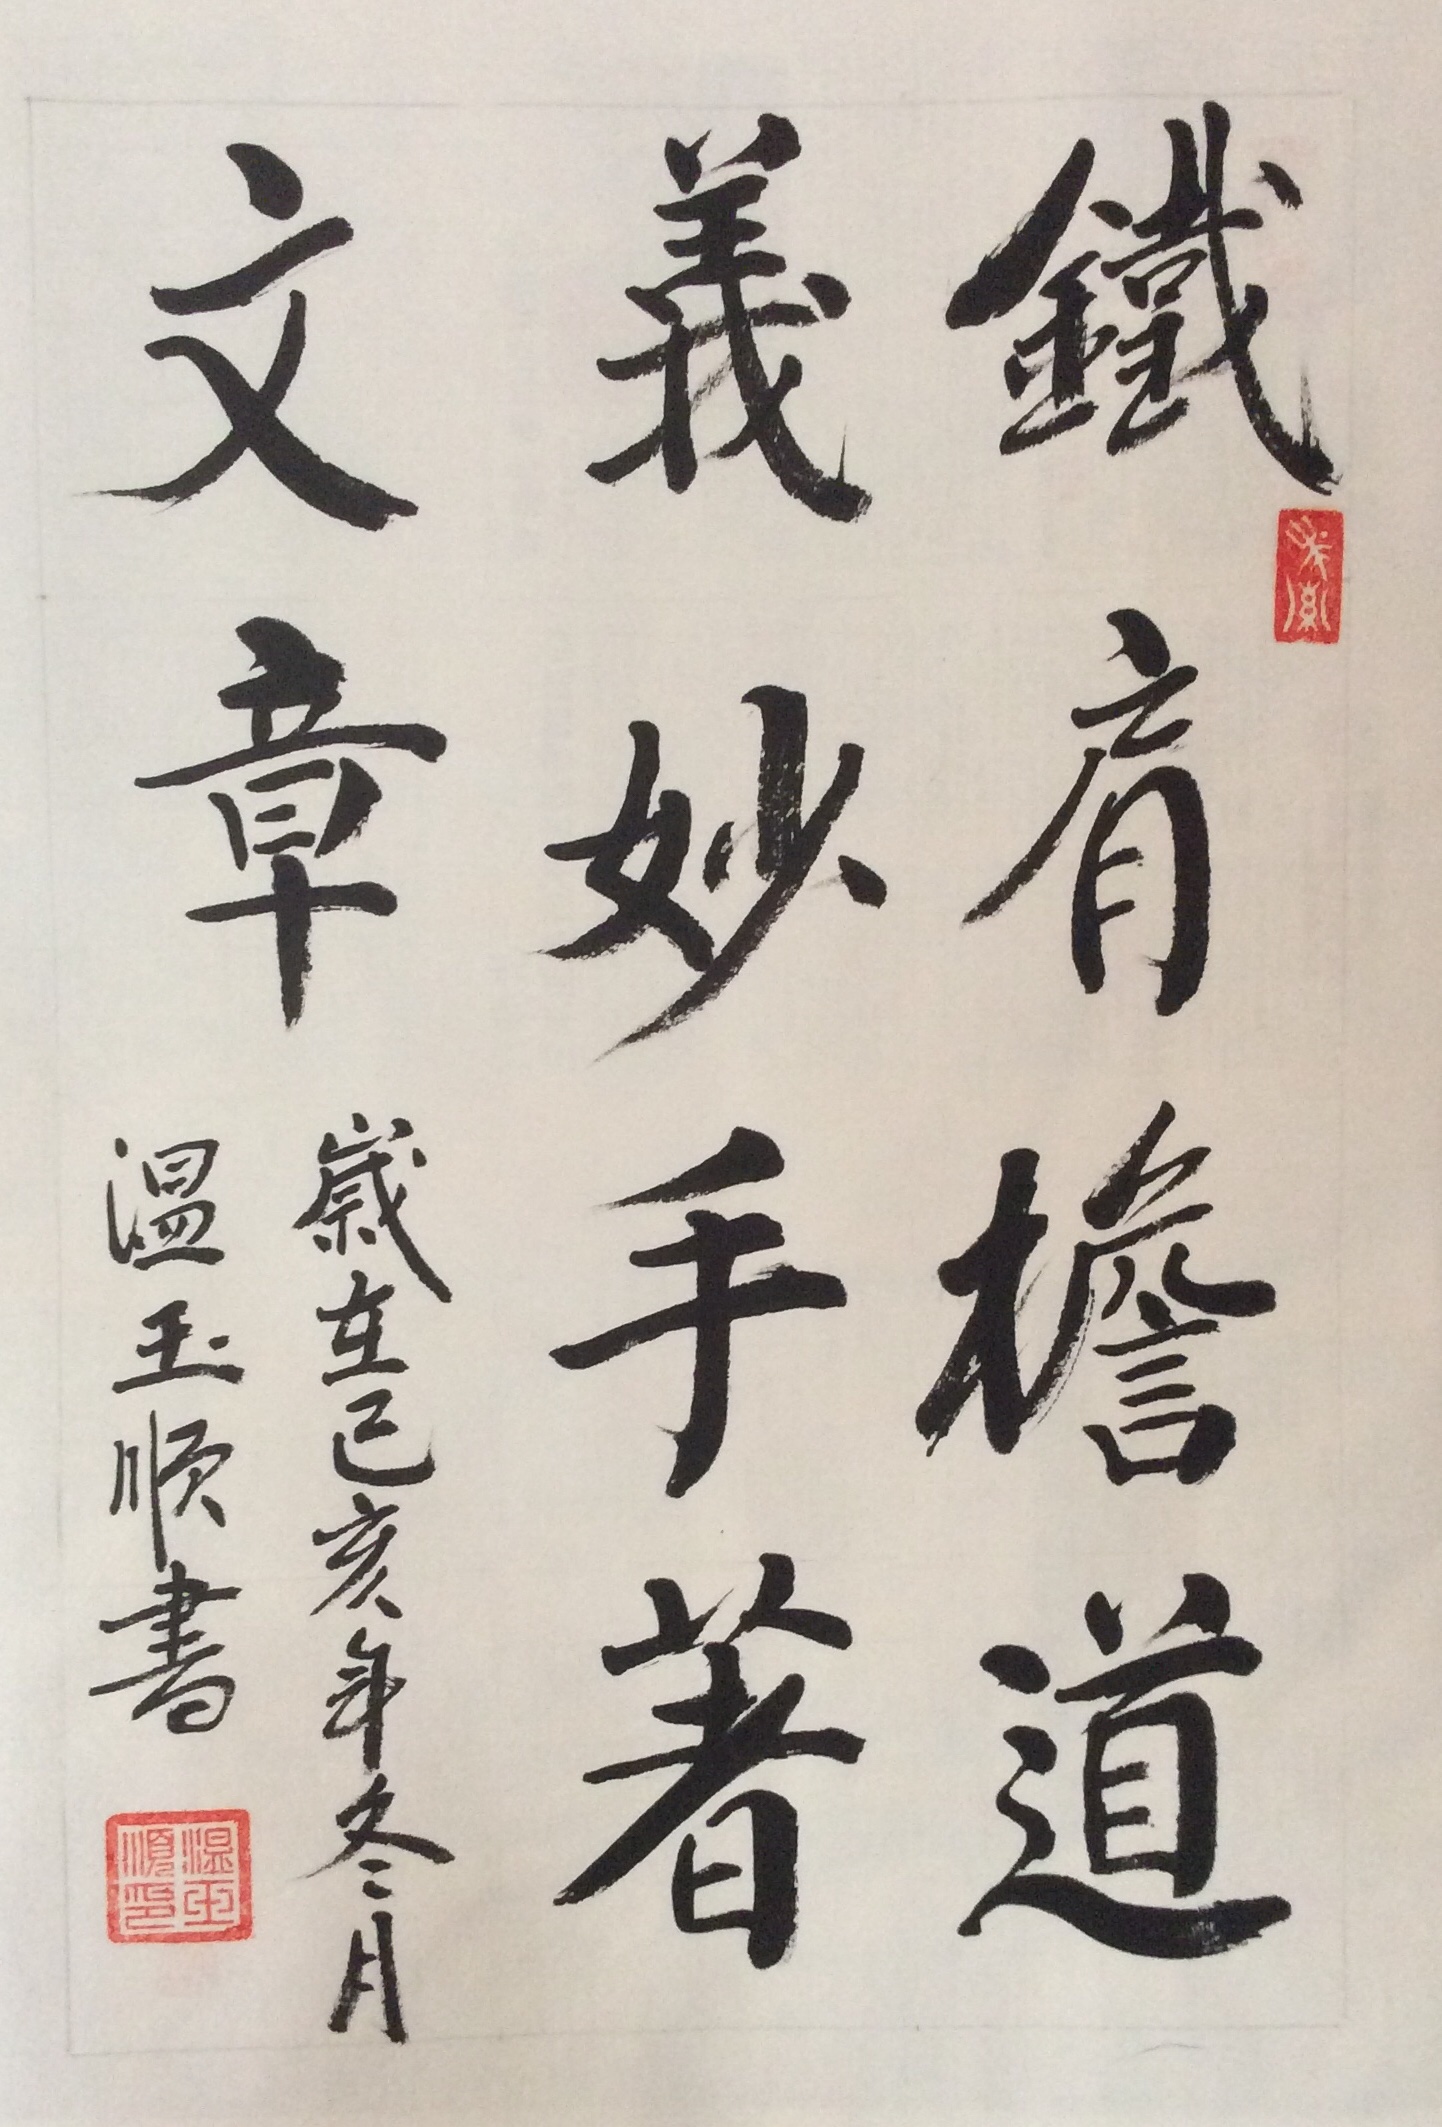 鐵肩檐道
義妙手著
文章
歲在己亥年冬月
溫玉順書
溫玉順印